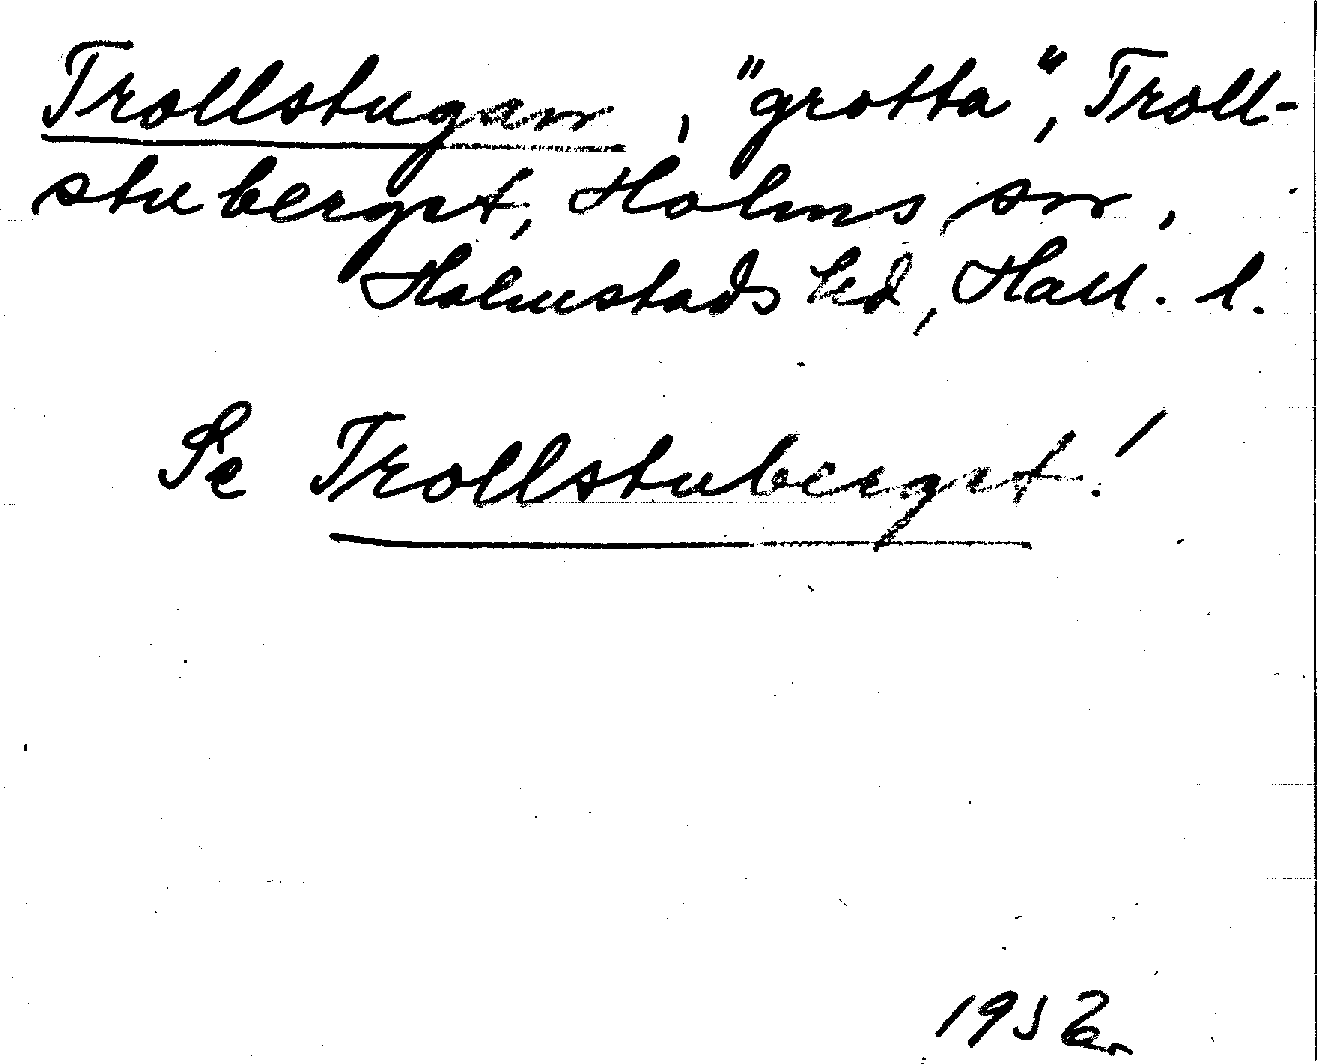 Trollstugan, "grotta", Troll-
stuberget, Holms sn,
Halmstads hd, Hall. l.
Se Trollstuberget!
1952